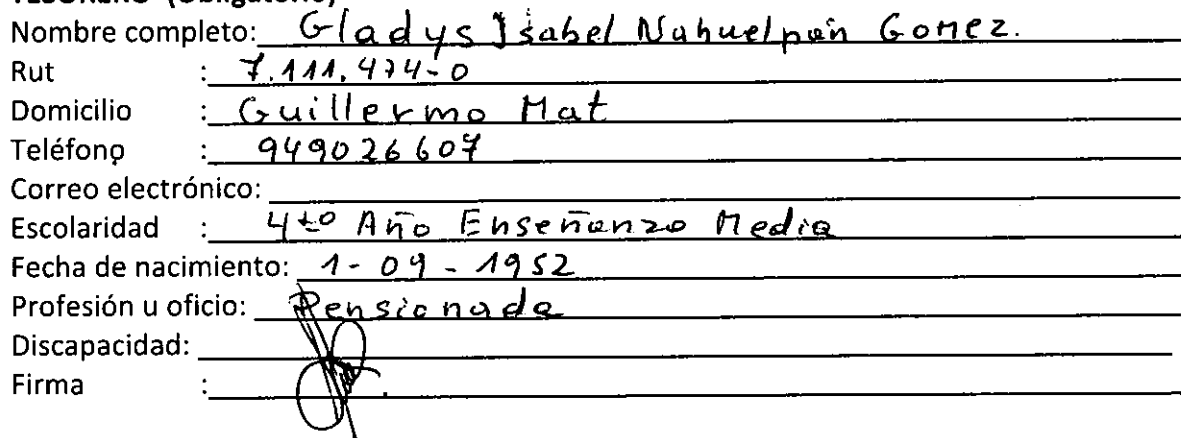 TESORERO (Obligatorio)
Nombre completo: Gladys Isabel Nahuelpán Gomez.
Rut : 7.111.474-0
Domicilio : Guillermo Mat
Teléfono : 949026607
Correo electrónico:
Escolaridad : 4to Año Enseñanza Media
Fecha de nacimiento: 1-09-1952
Profesión u oficio: Pensionada
Discapacidad:
Firma :